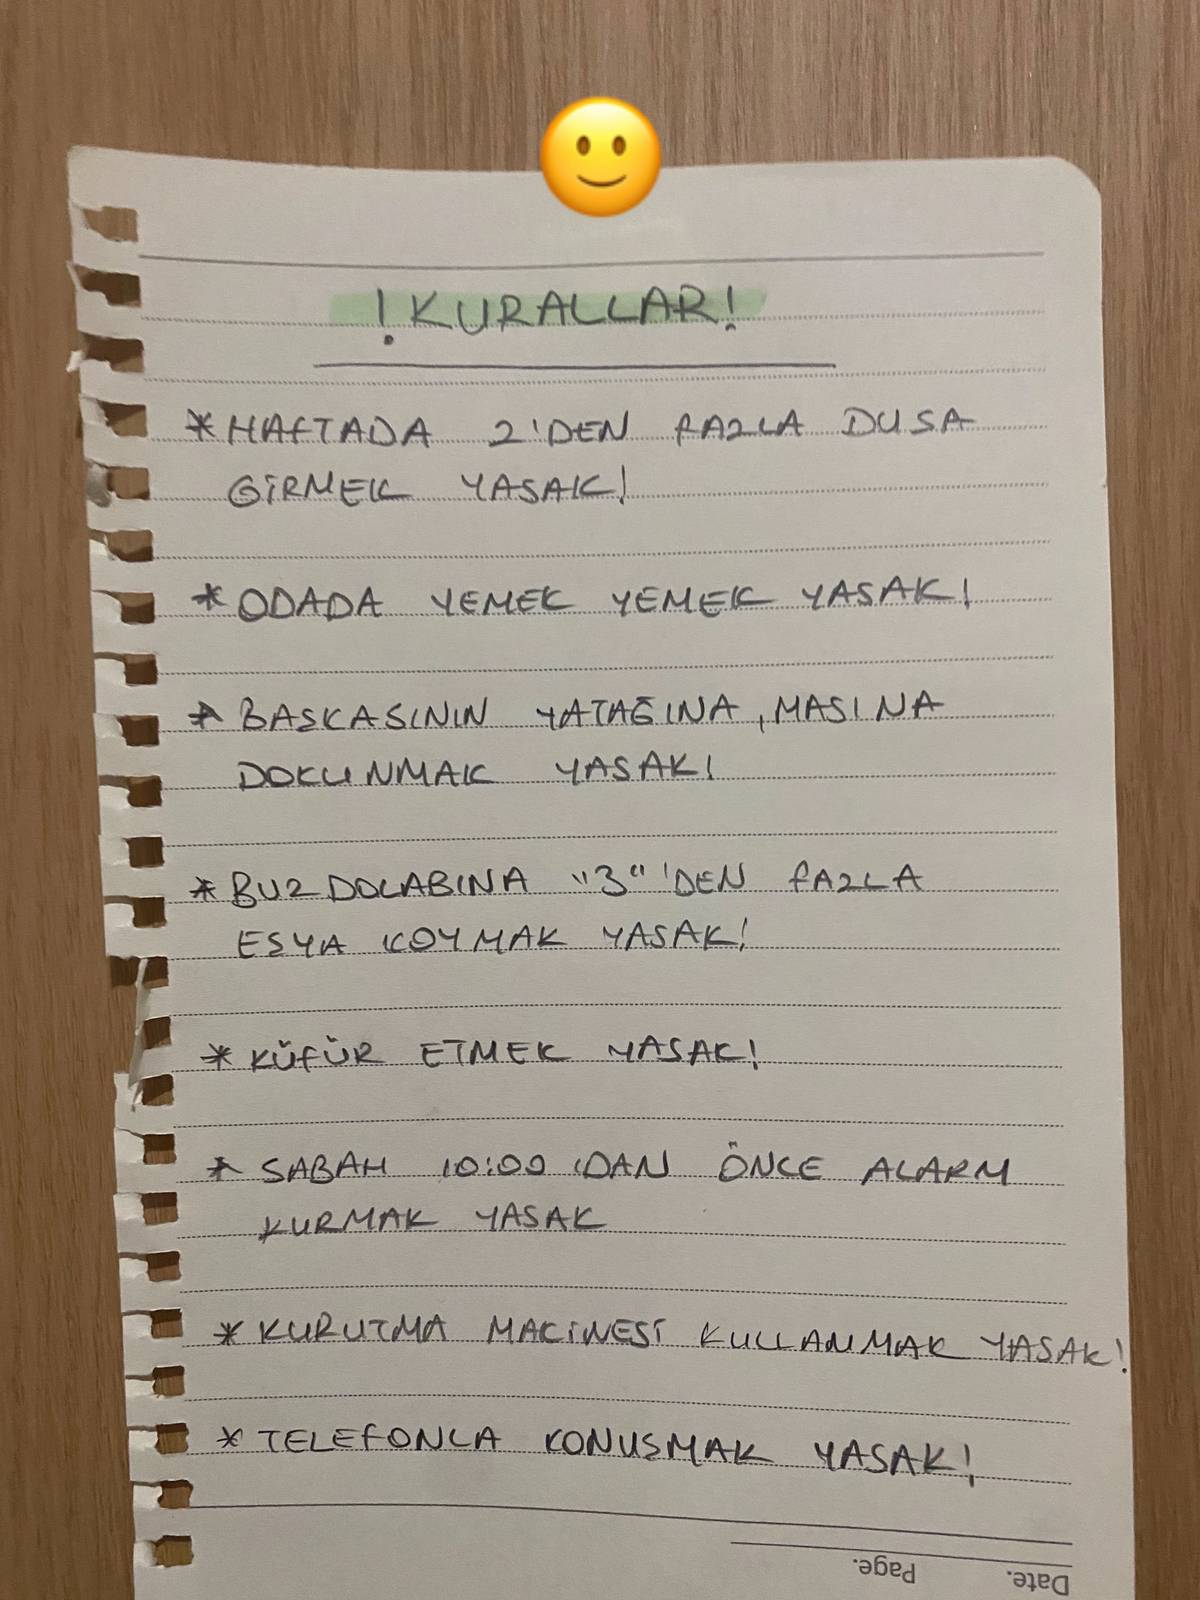 !KURALLAR!
*HAFTADA 2'DEN FAZLA DUŞA
GİRMEK YASAK!
*ODADA YEMEK YEMEK YASAK!
*BAŞKASININ YATAĞINA, MASINA
DOKUNMAK YASAK!
*BUZDOLABINA "3" 'DEN FAZLA
EŞYA KOYMAK YASAK!
*KÜFÜR ETMEK YASAK!
*SABAH 10:00 'DAN ÖNCE ALARM
KURMAK YASAK
*KURUTMA MAKİNESİ KULLANMAK YASAK!
*TELEFONLA KONUŞMAK YASAK!
Page.
Date.